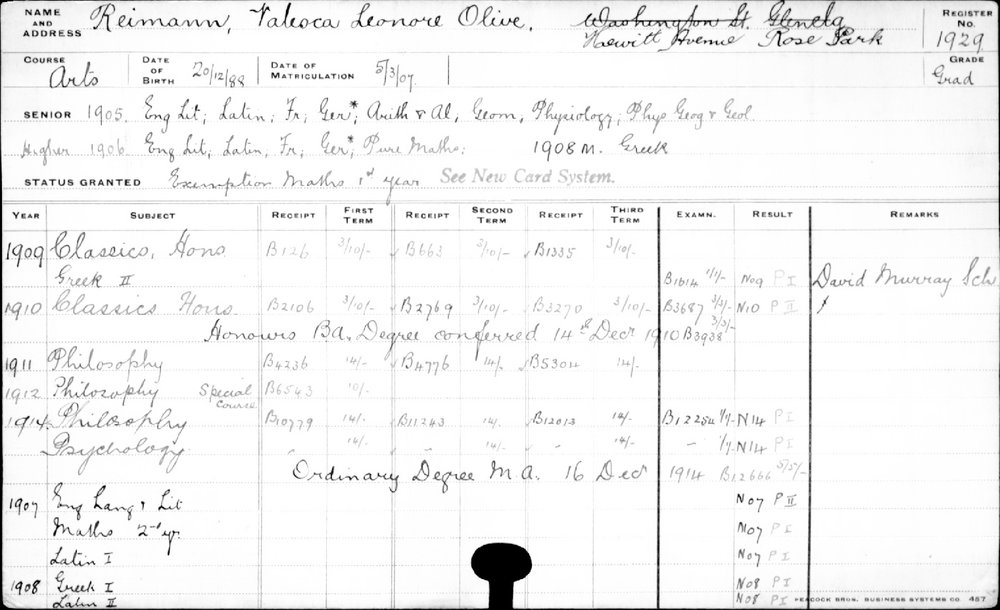 NAME AND ADDRESS Reimann, Valesca Leonore Olive, Washington St. Glenelg REGISTER No.
Hewitt Avenue Rose Park 1929
COURSE Arts DATE OF BIRTH 20/12/88 DATE OF MATRICULATION 5/3/07 GRADE Grad
SENIOR 1905. Eng Lit; Latin; Fr; Ger*; Arith & Al, Geom, Physiology; Phys Geog & Geol.
Higher 1906. Eng Lit; Latin, Fr; Ger*; Pure Maths; 1908 M. Greek
STATUS GRANTED Exemption Maths 1st year See New Card System.
YEAR SUBJECT RECEIPT FIRST TERM RECEIPT SECOND TERM RECEIPT THIRD TERM EXAMN. RESULT REMARKS
1909 Classics, Hons. B126 3/10/- B663 3/10/- B1335 3/10/-
Greek II B1614 1/1/- N09 P I David Murray Sch.
1910 Classics Hons. B2106 3/10/- B2769 3/10/- B3270 3/10/- B3687 3/3/- N10 P II
Honours BA. Degree conferred 14th Decr 1910 B3938 3/3/-
1911 Philosophy B4236 14/- B4776 14/- B5304 14/-
1912 Philosophy Special Course B6543 10/-
1914 Philosophy B10779 14/- B11243 14/- B12013 14/- B12254 1/1/- N14 P I
Psychology " 14/- " 14/- " 14/- " 1/1/- N14 P I
Ordinary Degree M.A. 16 Decr 1914 B12666 5/5/-
1907 Eng Lang & Lit N07 P II
Maths 2nd yr. N07 P I
Latin I N07 P I
1908 Greek I N08 P I
Latin II N08 P I
PEACOCK BROS. BUSINESS SYSTEMS CO. 457